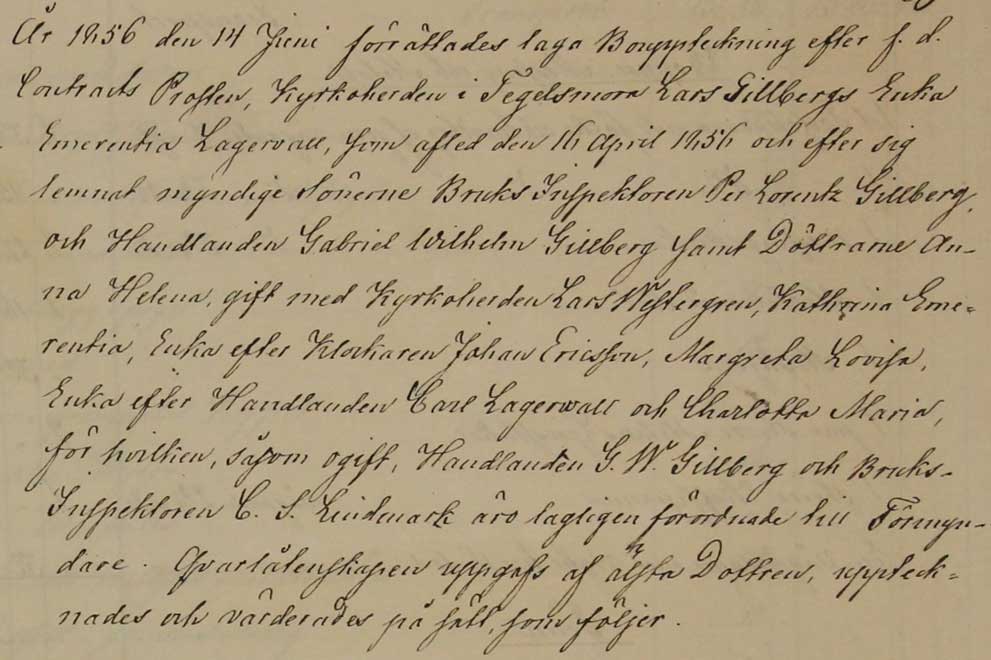 År 1856 den 14 Juni förrättades laga Bouppteckning efter f. d.
Contracts Prosten, Kyrkoherden i Tegelsmora Lars Gillbergs Enka
Emerentia Lagervall, som afled den 16 April 1856 och efter sig
lemnat myndige Sönerne Bruks Inspektoren Per Lorentz Gillberg,
och Handlanden Gabriel Wilhelm Gillberg samt Döttrarne An-
na Helena, gift med Kyrkoherden Lars Westergren, Kathrina Eme-
rentia, Enka efter Klockaren Johan Ericsson, Margreta Lovisa,
Enka efter Handlanden Carl Lagerwall och Charlotta Maria,
för hvilken, såsom ogift, Handlanden G. W. Gillberg och Bruks-
Inspektoren C. S. Lindmark äro lagligen förordnade till Förmyn-
dare. Qvarlåtenskapen uppgafs af älsta Dottren, uppteck-
nades och värderades på sätt, som följer.